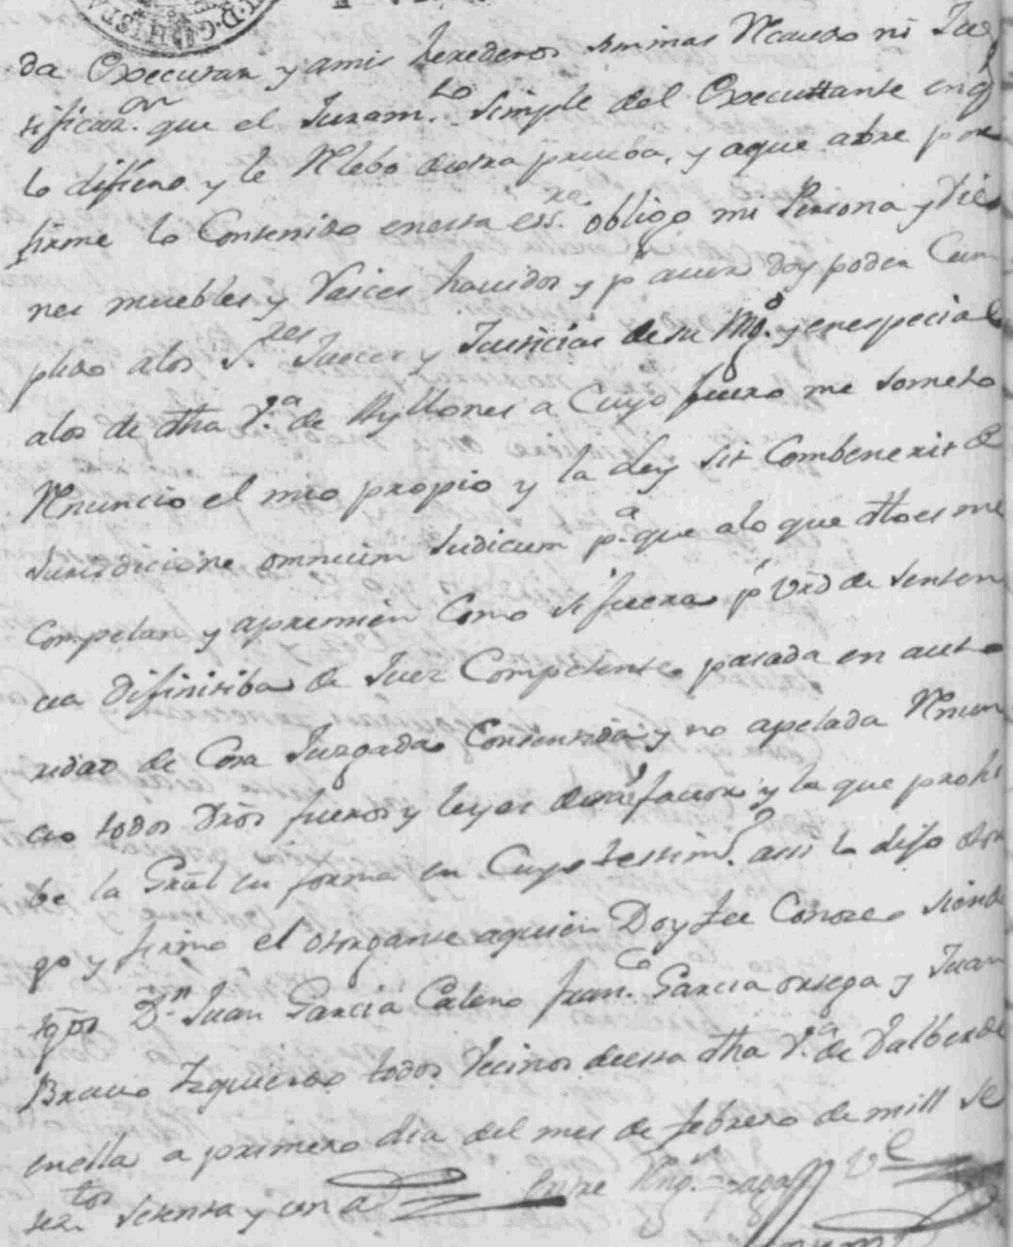 da executar y amis herederos sin mas Recaudo ni Jus
tificaz.on que el Juram.to simple del Executtante en q
lo difiero y le Relebo deotra prueba, y aque abre por
firme lo Contenido enesta ess.ra obligo mi Persona y Vie
nes muebles y Raices havidos y p.r aver doy poder Cum
plido alos S.res Jueces y Justicias de su Mg.d y en especial
alos de dha V.a de Myllones a Cuyo fuero me someto
Renuncio el mio propio y la Ley sit Combenerit de
Jurisdicione omnium Judicum p.a que alo que dho es me
Compelan y apremien Como si fuera p.r Vrd de senten
cia difinitiba de Juez Competente pasada en auto
ridad de Cosa Juzgada Consentida y no apelada Renun
cio todos Dros fueros y leyes demi favor y la que prohi
be la Gral en forma en Cuyo testim.o assi lo dijo otor
go y firmo el otorgante aquien Doy fee Conozco siendo
tgos D.n Juan Garcia Caleno fran.co Garcia ortega y Juan
Bravo Izquierdo todos Vecinos deesta dha V.a de Valberde
enella a primero dia del mes de febrero de mill se
tez.tos setenta y un a